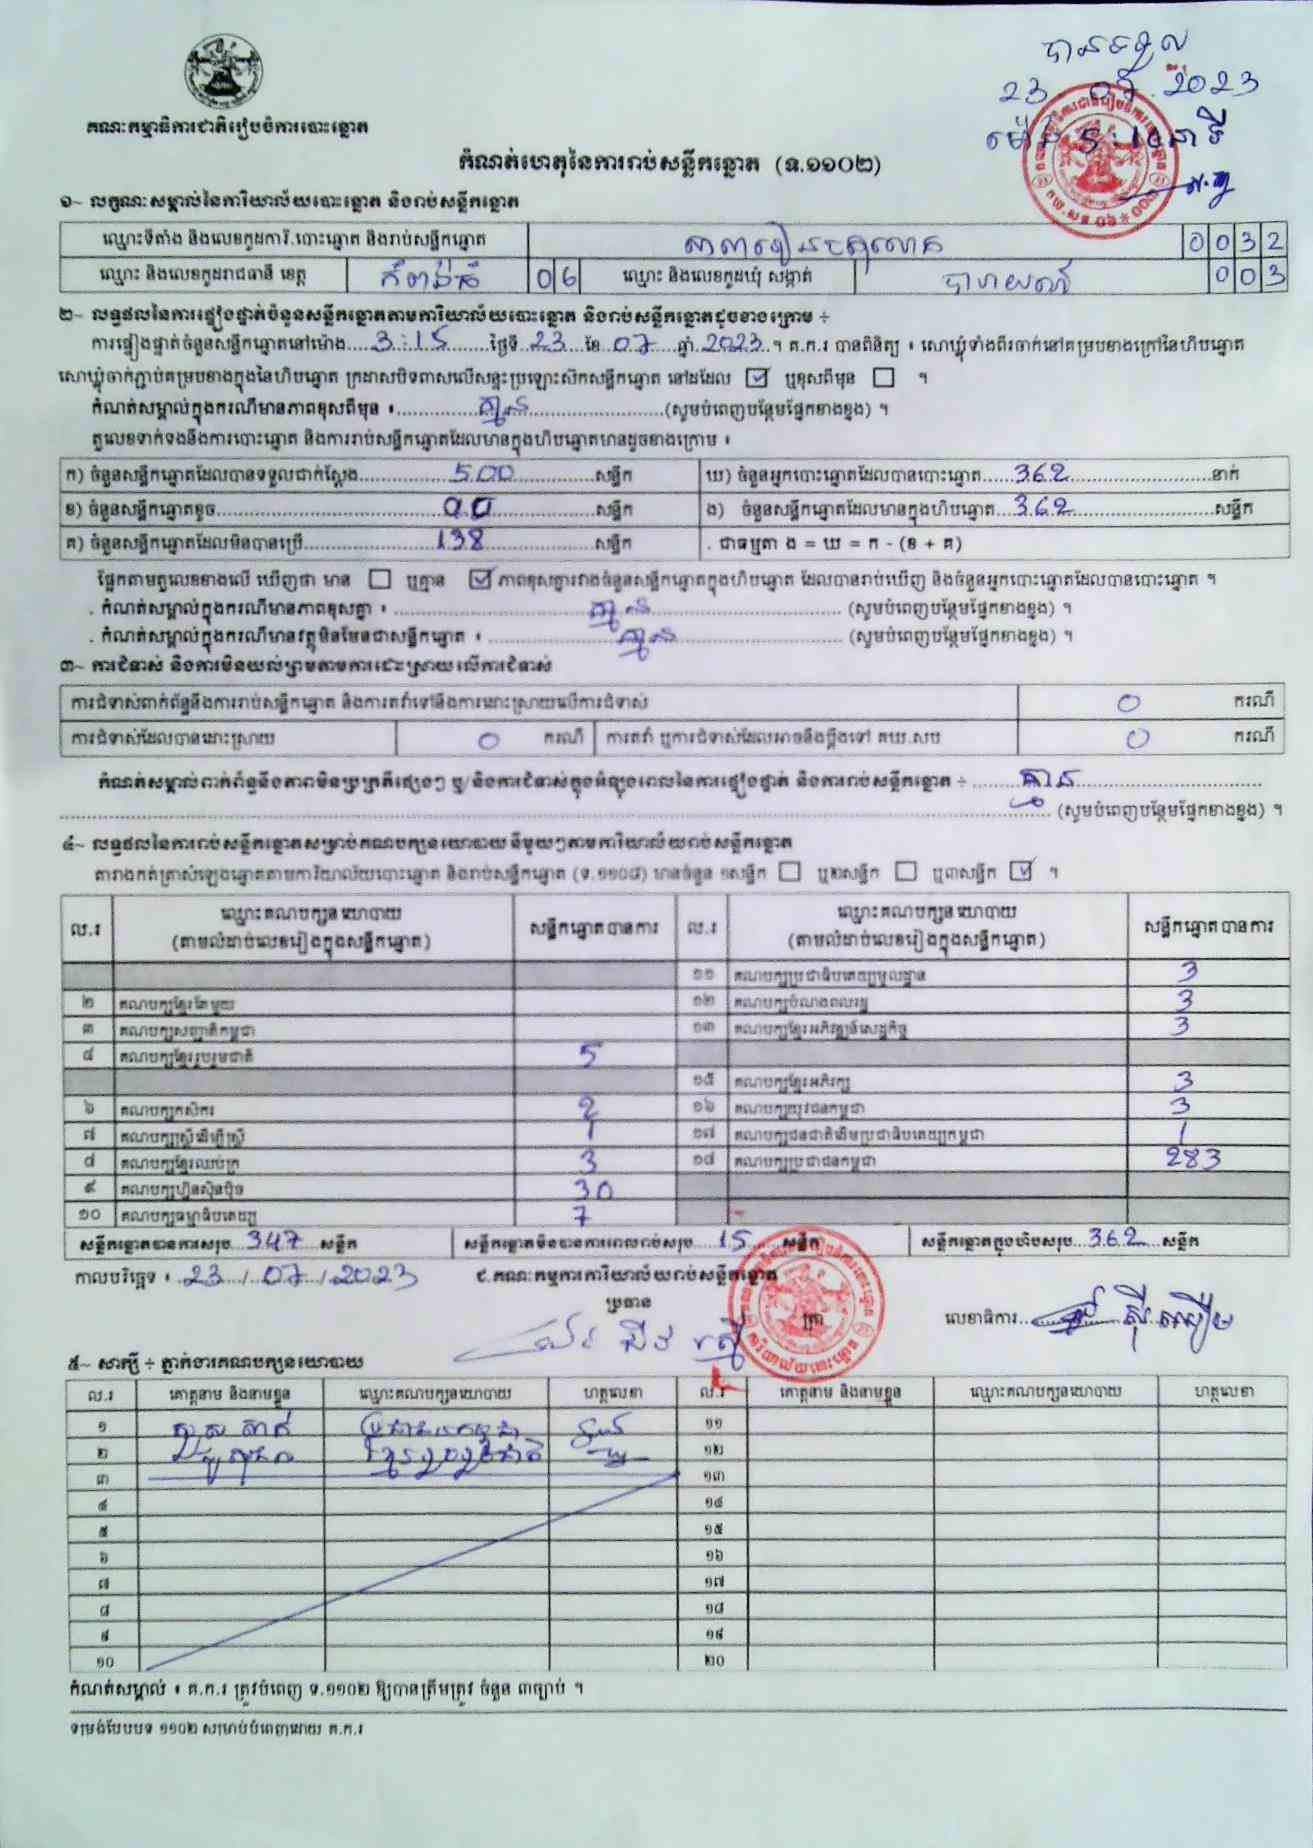 បានទទួល
23 07 2023
ម៉ោង 5:12 នាទី
គណៈកម្មាធិការជាតិរៀបចំការបោះឆ្នោត
កំណត់ហេតុនៃការរាប់សន្លឹកឆ្នោត (ទ.១១០២)
១~ លក្ខណៈសម្គាល់នៃការិយាល័យបោះឆ្នោត និងរាប់សន្លឹកឆ្នោត
ឈ្មោះទីតាំង និងលេខកូដការិ.បោះឆ្នោត និងរាប់សន្លឹកឆ្នោត 0032
ឈ្មោះ និងលេខកូដរាជធានី ខេត្ត កំពង់ធំ 06 ឈ្មោះ និងលេខកូដឃុំ សង្កាត់ បារាយណ៍ 003
២~ លទ្ធផលនៃការផ្ទៀងផ្ទាត់ចំនួនសន្លឹកឆ្នោតតាមការិយាល័យបោះឆ្នោត និងរាប់សន្លឹកឆ្នោតដូចខាងក្រោម ÷
ការផ្ទៀងផ្ទាត់ចំនួនសន្លឹកឆ្នោតនៅម៉ោង 3:15 ថ្ងៃទី 23 ខែ 07 ឆ្នាំ 2023 ។ គ.ក.រ បានពិនិត្យ ៖ សោឃ្លុំទាំងពីរចាក់នៅគម្របខាងក្រៅនៃហិបឆ្នោត
សោឃ្លុំចាក់ភ្ជាប់គម្របខាងក្នុងនៃហិបឆ្នោត ក្រដាសបិទពាសលើសន្ទះប្រឡោះស៊កសន្លឹកឆ្នោត នៅដដែល ☑ ឬខុសពីមុន ☐ ។
កំណត់សម្គាល់ក្នុងករណីមានភាពខុសពីមុន ៖ គ្មាន (សូមបំពេញបន្ថែមផ្នែកខាងខ្នង) ។
តួលេខទាក់ទងនឹងការបោះឆ្នោត និងការរាប់សន្លឹកឆ្នោតដែលមានក្នុងហិបឆ្នោតមានដូចខាងក្រោម ៖
ក) ចំនួនសន្លឹកឆ្នោតដែលបានទទួលជាក់ស្តែង 500 សន្លឹក ឃ) ចំនួនអ្នកបោះឆ្នោតដែលបានបោះឆ្នោត 362 នាក់
ខ) ចំនួនសន្លឹកឆ្នោតខូច 00 សន្លឹក ង) ចំនួនសន្លឹកឆ្នោតដែលមានក្នុងហិបឆ្នោត 362 សន្លឹក
គ) ចំនួនសន្លឹកឆ្នោតដែលមិនបានប្រើ 138 សន្លឹក . ជាធម្មតា ង = ឃ = ក - (ខ + គ)
ផ្អែកតាមតួលេខខាងលើ ឃើញថា មាន ☐ ឬគ្មាន ☑ ភាពខុសគ្នារវាងចំនួនសន្លឹកឆ្នោតក្នុងហិបឆ្នោត ដែលបានរាប់ឃើញ និងចំនួនអ្នកបោះឆ្នោតដែលបានបោះឆ្នោត ។
. កំណត់សម្គាល់ក្នុងករណីមានភាពខុសគ្នា ៖ គ្មាន (សូមបំពេញបន្ថែមផ្នែកខាងខ្នង) ។
. កំណត់សម្គាល់ក្នុងករណីមានវត្ថុមិនមែនជាសន្លឹកឆ្នោត ៖ គ្មាន (សូមបំពេញបន្ថែមផ្នែកខាងខ្នង) ។
៣~ ការជំទាស់ និងការមិនយល់ព្រមតាមការដោះស្រាយលើការជំទាស់
ការជំទាស់ពាក់ព័ន្ធនឹងការរាប់សន្លឹកឆ្នោត និងការតវ៉ាទៅនឹងការដោះស្រាយលើការជំទាស់ 0 ករណី
ការជំទាស់ដែលបានដោះស្រាយ 0 ករណី ការតវ៉ា ឬការជំទាស់ដែលអាចនឹងប្តឹងទៅ គឃ.សប 0 ករណី
កំណត់សម្គាល់ពាក់ព័ន្ធនឹងភាពមិនប្រក្រតីផ្សេងៗ ឬ/និងការជំទាស់ក្នុងអំឡុងពេលនៃការផ្ទៀងផ្ទាត់ និងការរាប់សន្លឹកឆ្នោត ÷ គ្មាន
(សូមបំពេញបន្ថែមផ្នែកខាងខ្នង) ។
៤~ លទ្ធផលនៃការរាប់សន្លឹកឆ្នោតសម្រាប់គណបក្សនយោបាយនីមួយៗតាមការិយាល័យរាប់សន្លឹកឆ្នោត
តារាងកត់ត្រាសំឡេងឆ្នោតតាមការិយាល័យបោះឆ្នោត និងរាប់សន្លឹកឆ្នោត (ទ.១១០៨) មានចំនួន ១សន្លឹក ☐ ឬ២សន្លឹក ☐ ឬ៣សន្លឹក ☑ ។
ល.រ ឈ្មោះគណបក្សនយោបាយ (តាមលំដាប់លេខរៀងក្នុងសន្លឹកឆ្នោត) សន្លឹកឆ្នោតបានការ ល.រ ឈ្មោះគណបក្សនយោបាយ (តាមលំដាប់លេខរៀងក្នុងសន្លឹកឆ្នោត) សន្លឹកឆ្នោតបានការ
១១ គណបក្សប្រជាធិបតេយ្យមូលដ្ឋាន 3
២ គណបក្សខ្មែរតែមួយ ១២ គណបក្សបំណងពលរដ្ឋ 3
៣ គណបក្សសញ្ជាតិកម្ពុជា ១៣ គណបក្សខ្មែរអភិវឌ្ឍន៍សេដ្ឋកិច្ច 3
៤ គណបក្សខ្មែររួបរួមជាតិ 5
១៥ គណបក្សខ្មែរអភិរក្ស 3
៦ គណបក្សកសិករ 2 ១៦ គណបក្សយុវជនកម្ពុជា 3
៧ គណបក្សស្ត្រីដើម្បីស្ត្រី 1 ១៧ គណបក្សជនជាតិដើមប្រជាធិបតេយ្យកម្ពុជា 1
៨ គណបក្សខ្មែរឈប់ក្រ 3 ១៨ គណបក្សប្រជាជនកម្ពុជា 283
៩ គណបក្សហ៊្វុនស៊ិនប៉ិច 30
១០ គណបក្សធម្មាធិបតេយ្យ 7
សន្លឹកឆ្នោតបានការសរុប 347 សន្លឹក សន្លឹកឆ្នោតមិនបានការពេលរាប់សរុប 15 សន្លឹក សន្លឹកឆ្នោតក្នុងហិបសរុប 362 សន្លឹក
កាលបរិច្ឆេទ ៖ 23 / 07 / 2023 ជ.គណៈកម្មការការិយាល័យរាប់សន្លឹកឆ្នោត
ប្រធាន ត្រា លេខាធិការ
៥~ សាក្សី ÷ ភ្នាក់ងារគណបក្សនយោបាយ
ល.រ គោត្តនាម និងនាមខ្លួន ឈ្មោះគណបក្សនយោបាយ ហត្ថលេខា ល.រ គោត្តនាម និងនាមខ្លួន ឈ្មោះគណបក្សនយោបាយ ហត្ថលេខា
១ ប្រជាជនកម្ពុជា ១១
២ ខ្មែររួបរួមជាតិ ១២
៣ ១៣
៤ ១៤
៥ ១៥
៦ ១៦
៧ ១៧
៨ ១៨
៩ ១៩
១០ ២០
កំណត់សម្គាល់ ៖ គ.ក.រ ត្រូវបំពេញ ទ.១១០២ ឱ្យបានត្រឹមត្រូវ ចំនួន ៣ច្បាប់ ។
ទម្រង់បែបបទ ១១០២ សម្រាប់បំពេញដោយ គ.ក.រ